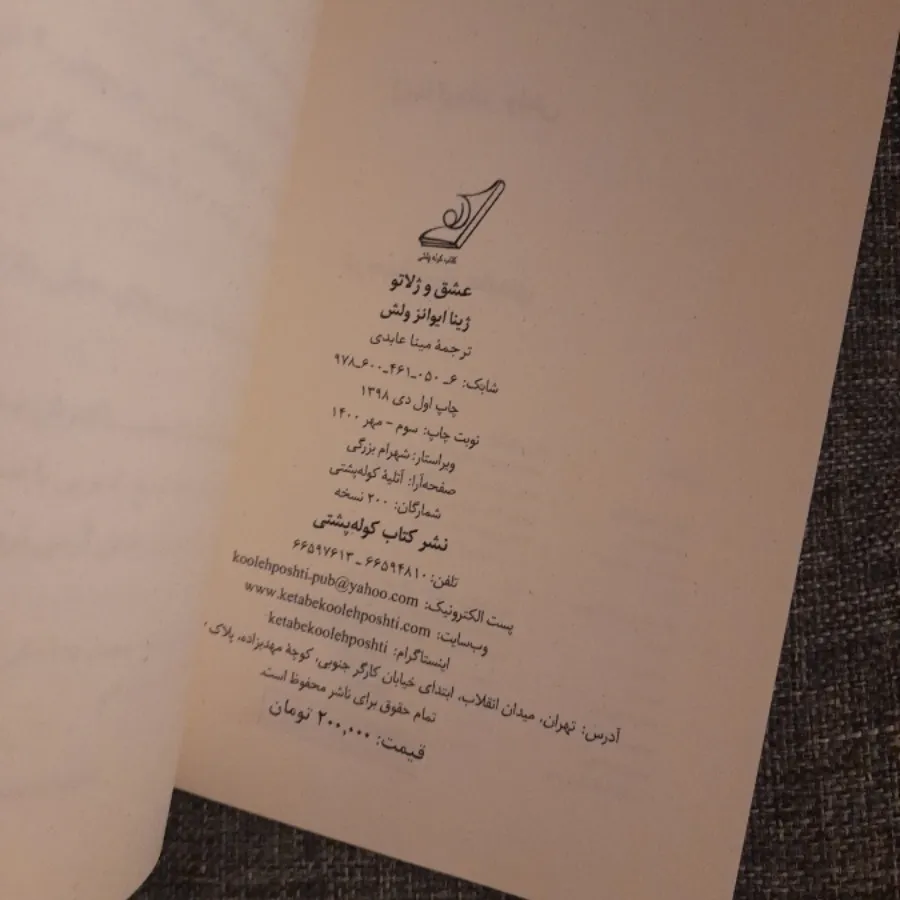 کتاب کوله پشتی
عشق و ژلاتو
ژینا ایوانز ولش
ترجمهٔ مینا عابدی
شابک: ۶ـ ۰۵۰ـ۴۶۱ـ۶۰۰ـ۹۷۸
چاپ اول دی ۱۳۹۸
نوبت چاپ: سوم - مهر ۱۴۰۰
ویراستار: شهرام بزرگی
صفحه‌آرا: آتلیهٔ کوله‌پشتی
شمارگان: ۲۰۰ نسخه
نشر کتاب کوله‌پشتی
تلفن: ۶۶۵۹۴۸۱۰ ـ ۶۶۵۹۷۶۱۳
پست الکترونیک: koolehposhti.pub@yahoo.com
وب‌سایت: www.ketabekoolehposhti.com
اینستاگرام: ketabekoolehposhti
آدرس: تهران، میدان انقلاب، ابتدای خیابان کارگر جنوبی، کوچهٔ مهدیزاده، پلاک
تمام حقوق برای ناشر محفوظ است.
قیمت: ۲۰۰,۰۰۰ تومان